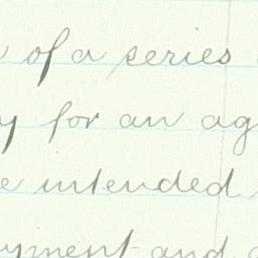 of a series
for an ag
e intended
yment and